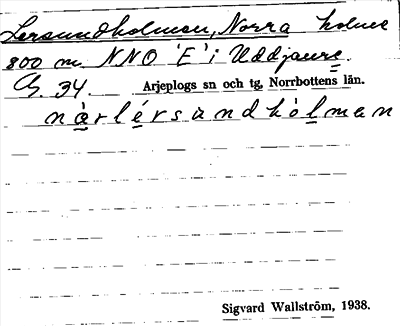 Lersundholmen, Norra holme
800 m NNO 'E' i Uddjaure.
G. 34. Arjeplogs sn och tg, Norrbottens län.
nàrlérsùndhòlman
Sigvard Wallström, 1938.